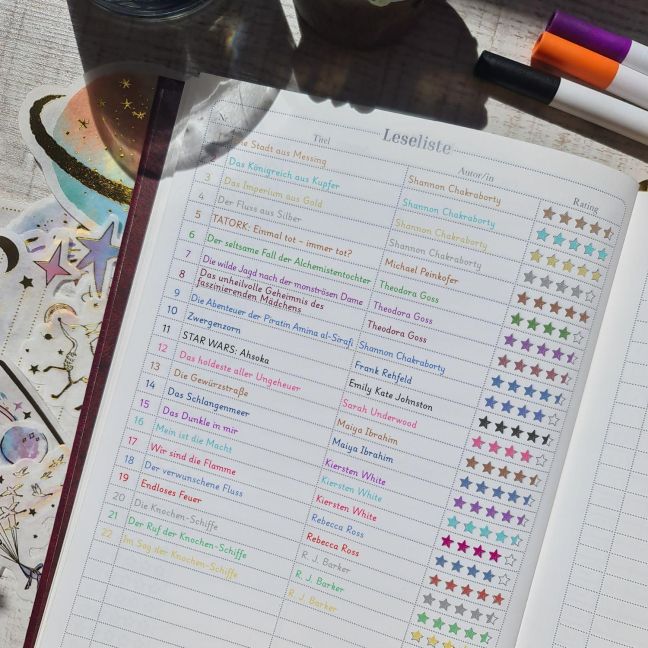 Leseliste
Titel Autor/in Rating
Stadt aus Messing Shannon Chakraborty
Das Königreich aus Kupfer Shannon Chakraborty
3 Das Imperium aus Gold Shannon Chakraborty
4 Der Fluss aus Silber Shannon Chakraborty
5 TATORK: Einmal tot – immer tot? Michael Peinkofer
6 Der seltsame Fall der Alchemistentochter Theodora Goss
7 Die wilde Jagd nach der monströsen Dame Theodora Goss
8 Das unheilvolle Geheimnis des
faszinierenden Mädchens Theodora Goss
9 Die Abenteuer der Piratin Amina al-Sirafi Shannon Chakraborty
10 Zwergenzorn Frank Rehfeld
11 STAR WARS: Ahsoka Emily Kate Johnston
12 Das holdeste aller Ungeheuer Sarah Underwood
13 Die Gewürzstraße Maiya Ibrahim
14 Das Schlangenmeer Maiya Ibrahim
15 Das Dunkle in mir Kiersten White
16 Mein ist die Macht Kiersten White
17 Wir sind die Flamme Kiersten White
18 Der verwunschene Fluss Rebecca Ross
19 Endloses Feuer Rebecca Ross
20 Die Knochen-Schiffe R. J. Barker
21 Der Ruf der Knochen-Schiffe R. J. Barker
22 Im Sog der Knochen-Schiffe R. J. Barker